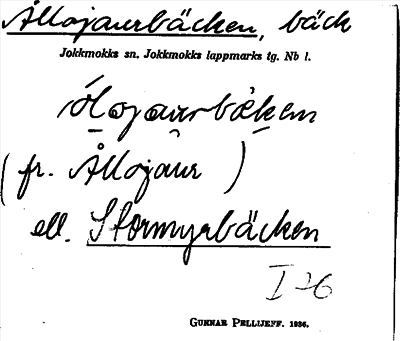 Ållojaurbäcken, bäck
Jokkmokks sn. Jokkmokks lappmarks tg. Nb l.
Ålojaurbäken
(fr. Ållojaur)
ell. Stormyrbäcken
I 26
GUNNAR PELLIJEFF. 1936.